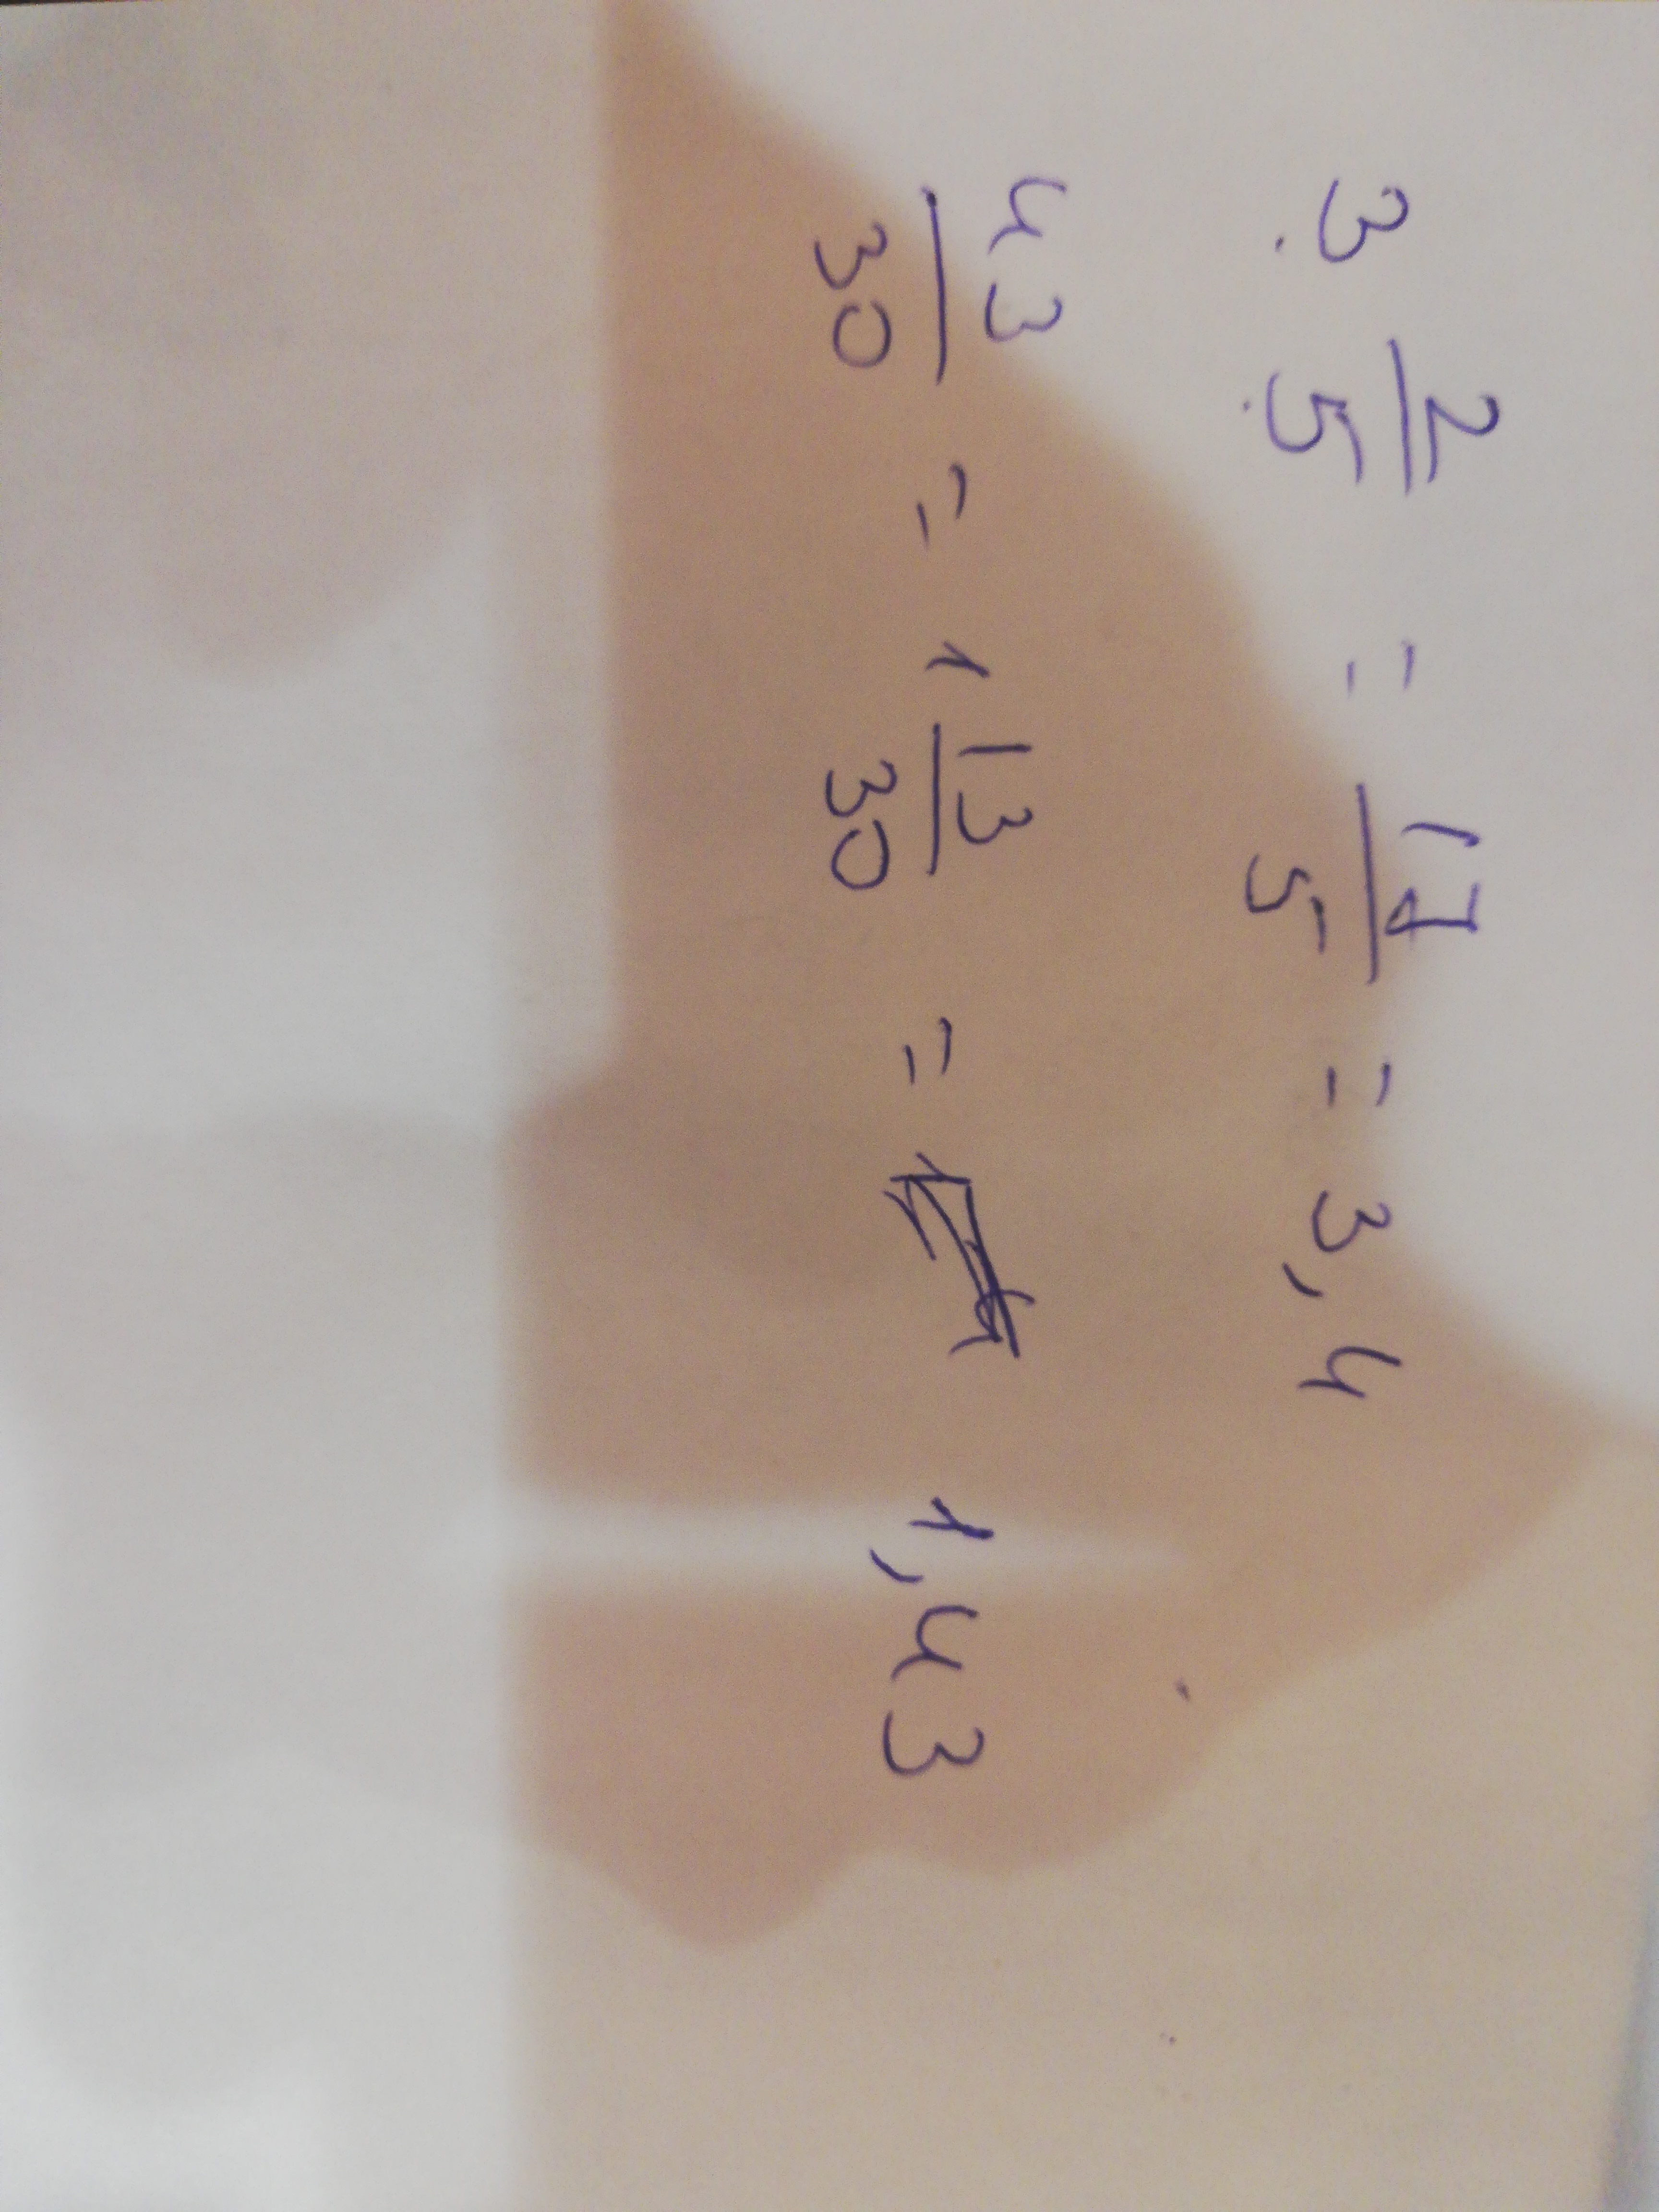 3 2/5 = 17/5 = 3,4
43/30 = 1 13/30 = 1,43